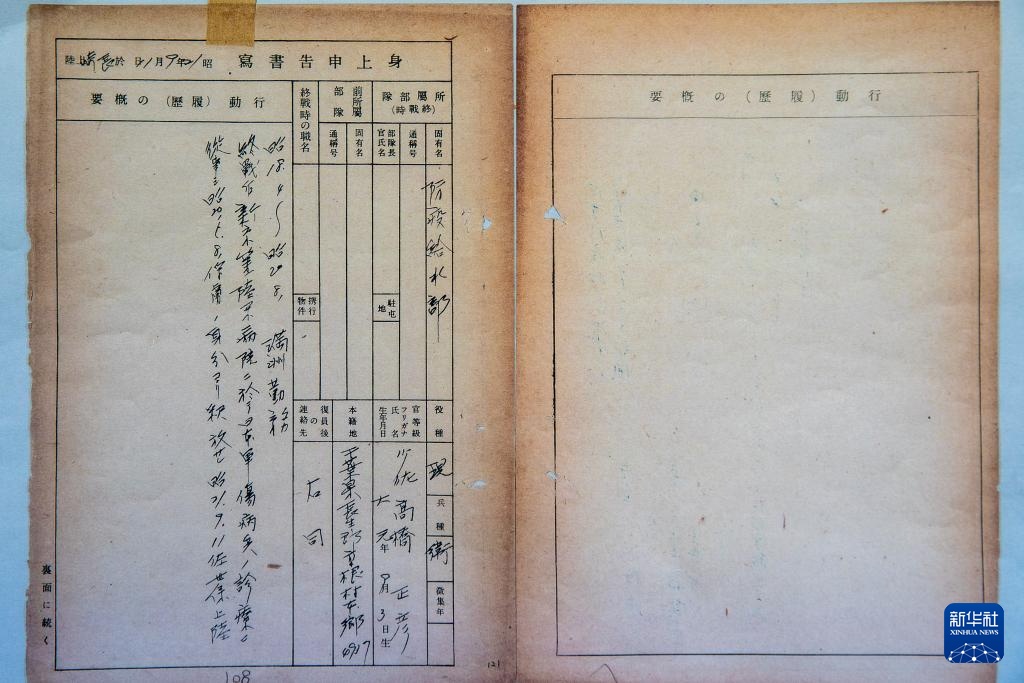 身上申告書寫 昭21年9月11日 於 長崎 上陸
所屬部隊(終戰時)
固有名 防疫給水部
通稱号
部隊長官氏名
駐屯地
前所屬部隊
固有名
通稱号
終戰時の職名
携行物件
役種 現
兵種 衛
徵集年
官等級 少佐
フリガナ
氏名 高橋 正彦
生年月日 大 元年 9月 3日生
本籍地 千葉県長生郡 村本郷
復員後の連絡先 右同
行動(履歷)の概要
昭18.4〜昭20.8. 滿洲勤務
終戰后 陸軍病院ニ於テ日本軍傷病兵ノ診療ニ
從事シ昭 身分ヨリ釈放セ 昭21.9.11佐世保上陸
裏面に続く
108
121
行動(履歷)の概要
新华社
XINHUA NEWS